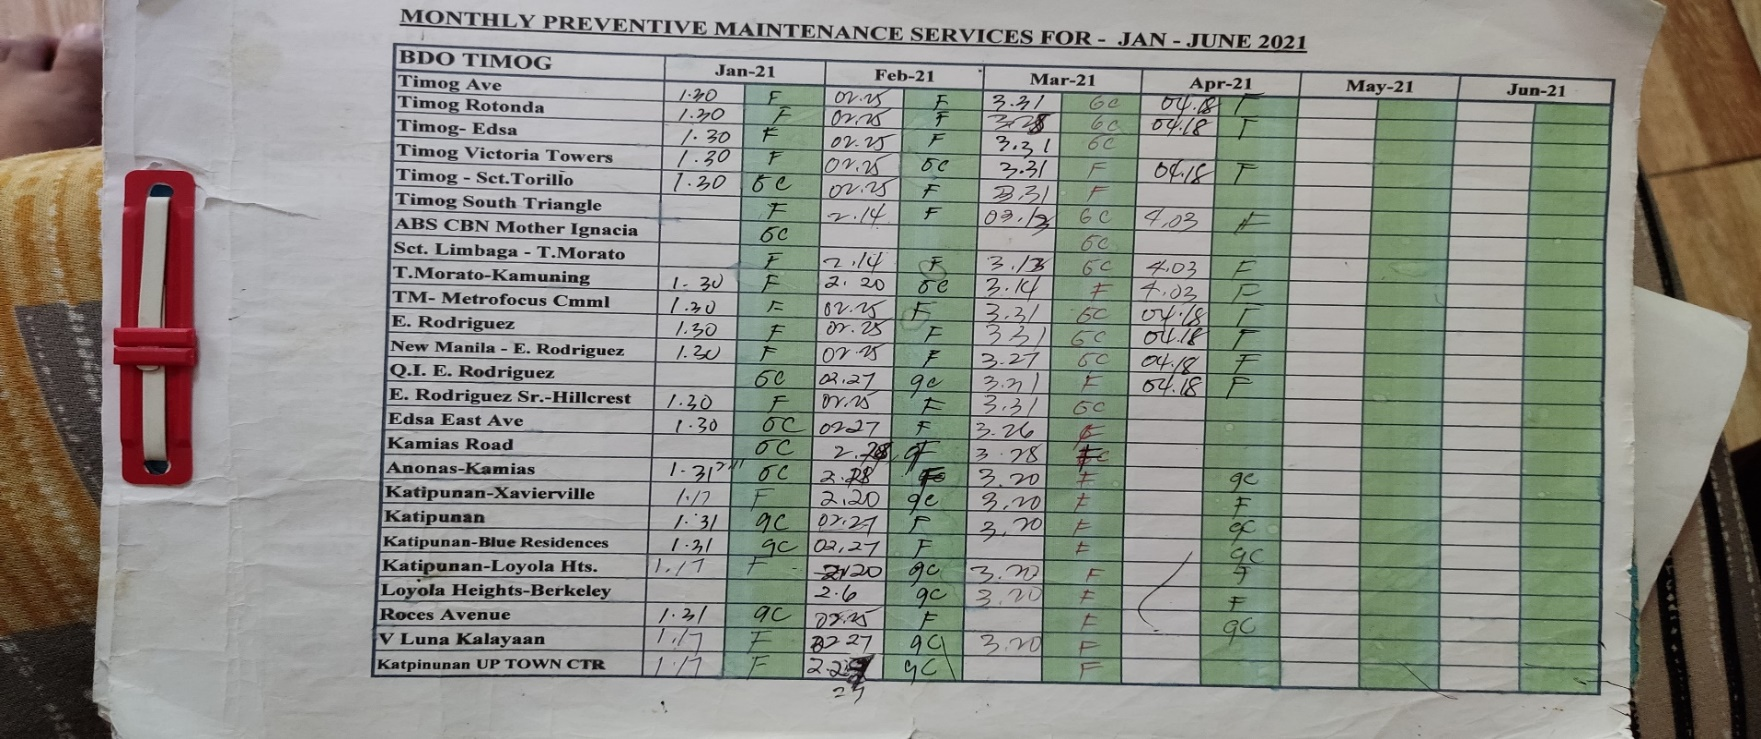 MONTHLY PREVENTIVE MAINTENANCE SERVICES FOR - JAN - JUNE 2021
BDO TIMOG Jan-21 Feb-21 Mar-21 Apr-21 May-21 Jun-21
Timog Ave 1.30 F 02.25 F 3.31 GC 04.18 F
Timog Rotonda 1.30 F 02.25 F GC 04.18 F
Timog- Edsa 1.30 F 02.25 F 3.31 GC
Timog Victoria Towers 1.30 F 02.25 GC 3.31 F 04.18 F
Timog - Sct.Torillo 1.30 GC 02.25 F 3.31 F
Timog South Triangle F 2.14 F 03.13 GC 4.03 F
ABS CBN Mother Ignacia GC GC
Sct. Limbaga - T.Morato F 2.14 F 3.13 GC 4.03 F
T.Morato-Kamuning 1.30 F 2.20 GC 3.14 F 4.03 F
TM- Metrofocus Cmml 1.30 F 02.25 F 3.31 GC 04.18 F
E. Rodriguez 1.30 F 02.25 F 3.31 GC 04.18 F
New Manila - E. Rodriguez 1.30 F 02.25 F 3.27 GC 04.18 F
Q.I. E. Rodriguez GC 02.27 gc F 04.18 F
E. Rodriguez Sr.-Hillcrest 1.30 F 02.25 F 3.31 GC
Edsa East Ave 1.30 GC 0227 F 3.26
Kamias Road GC F 3.28
Anonas-Kamias 1.31 GC 3.20 F gc
Katipunan-Xavierville 1.17 F 2.20 gc 3.20 F F
Katipunan 1.31 gc 02.27 F 3.20 F gc
Katipunan-Blue Residences 1.31 gc 02.27 F F gc
Katipunan-Loyola Hts. 1.17 F gc 3.20 F F
Loyola Heights-Berkeley 2.6 gc 3.20 F F
Roces Avenue 1.31 gc 02.25 F F gc
V Luna Kalayaan 1.17 F 0227 gc 3.20 F
Katpinunan UP TOWN CTR 1.17 F gc F